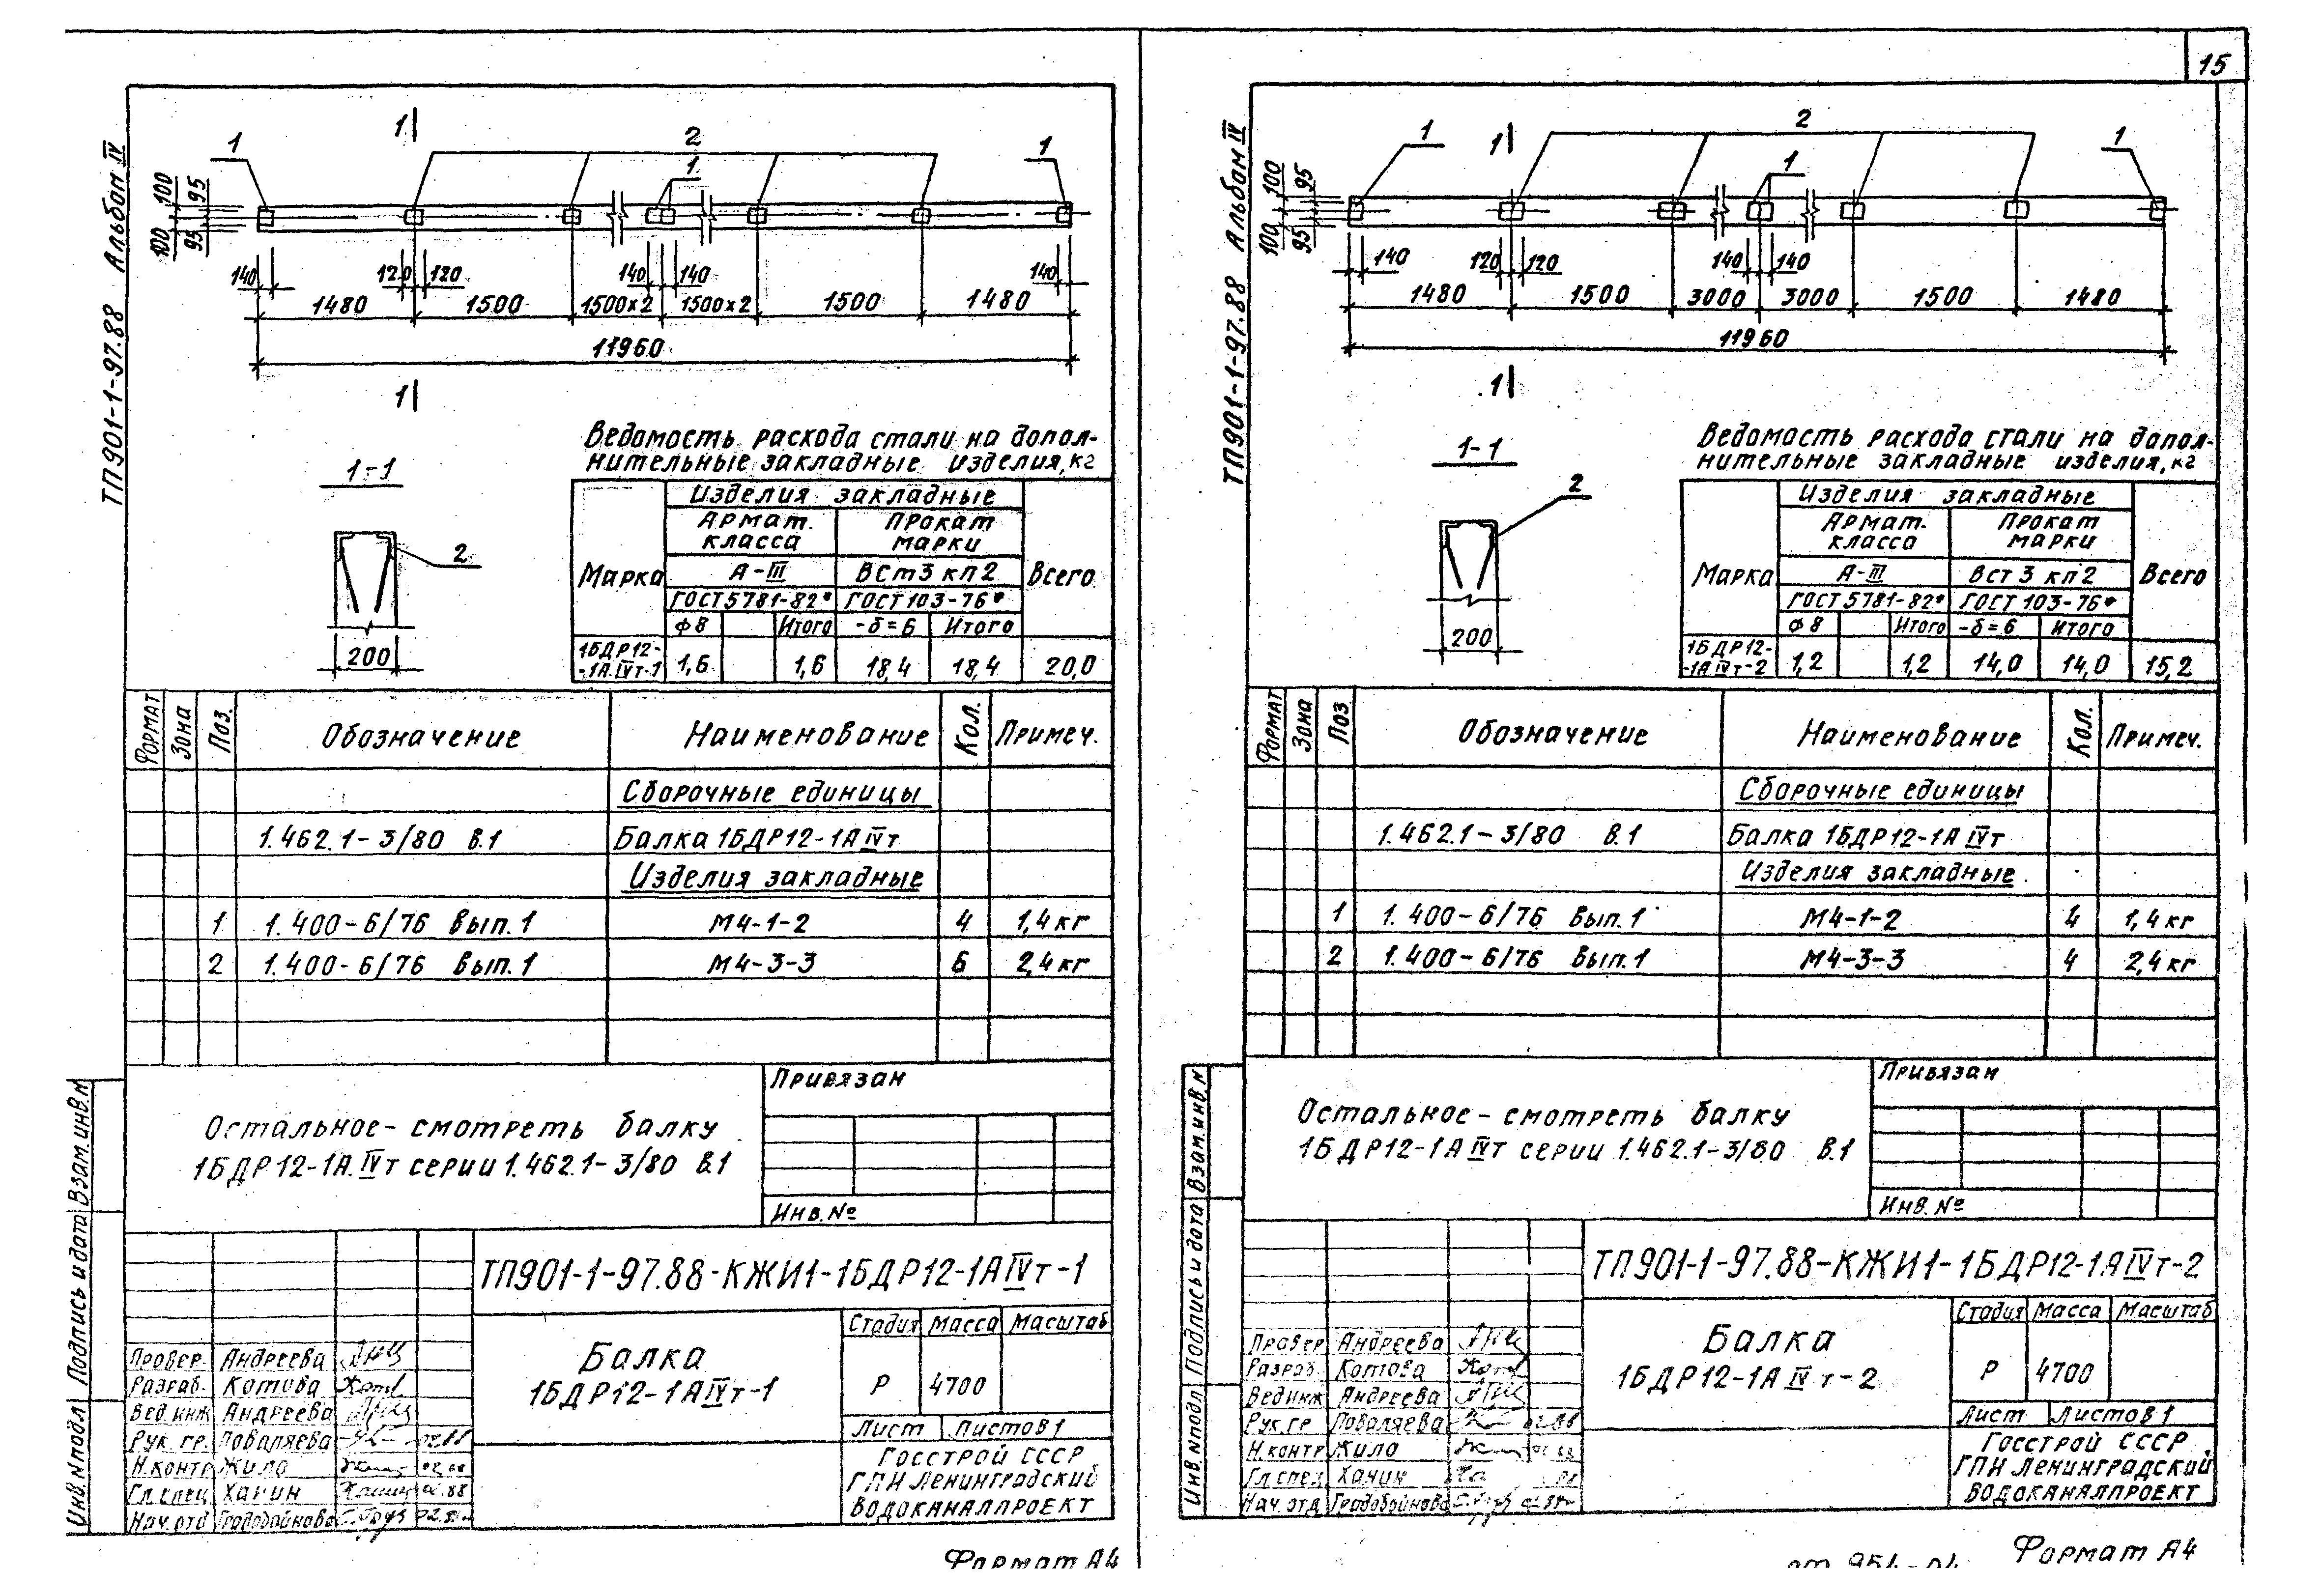 15
ТП901-1-97.88 Альбом IV
1
1
2
1
1
100
95
100
95
140
120
120
140
140
140
1480
1500
1500х2
1500х2
1500
1480
11960
1
1-1
2
200
Ведомость расхода стали на допол-
нительные закладные изделия, кг
Марка
Изделия закладные
Всего
Армат. класса
Прокат марки
А-III
ВСт3 кп2
ГОСТ5781-82*
ГОСТ103-76*
ф8
Итого
-δ=6
Итого
1БДР12-
-1АIVт-1
1,6
1,6
18,4
18,4
20,0
Формат
Зона
Поз.
Обозначение
Наименование
Кол.
Примеч.
Сборочные единицы
1.462.1-3/80 в.1
Балка 1БДР12-1АIVт
Изделия закладные
1 1.400-6/76 вып.1 М4-1-2 4 1,4кг
2 1.400-6/76 вып.1 М4-3-3 6 2,4кг
Остальное - смотреть балку
1БДР12-1АIVт серии 1.462.1-3/80 в.1
Привязан
Инв.№
Взам.инв.N
Подпись и дата
Инв.Nподл
ТП901-1-97.88-КЖИ1-1БДР12-1АIVт-1
Балка
1БДР12-1АIVт-1
Стадия Масса Масштаб
Р 4700
Лист Листов1
Госстрой СССР
ГПИ Ленинградский
Водоканалпроект
Провер. Андреева
Разраб. Котова
Вед.инж Андреева
Рук.гр. Поваляева 02.88
Н.контр Жило
Гл.спец Ханин 02.88
Нач.отд Гродобойнова
Формат А4
ТП901-1-97.88 Альбом IV
1
1
2
1
1
100
95
100
95
140
120
120
140
140
1480
1500
3000
3000
1500
1480
11960
1
1-1
2
200
Ведомость расхода стали на допол-
нительные закладные изделия, кг
Марка
Изделия закладные
Всего
Армат. класса
Прокат марки
А-III
Вст3 кп2
ГОСТ5781-82*
ГОСТ103-76*
ф8
Итого
-δ=6
Итого
1БДР12-
-1АIVт-2
1,2
1,2
14,0
14,0
15,2
Формат
Зона
Поз
Обозначение
Наименование
Кол.
Примеч.
Сборочные единицы
1.462.1-3/80 в.1
Балка 1БДР12-1АIVт
Изделия закладные
1 1.400-6/76 вып.1 М4-1-2 4 1,4кг
2 1.400-6/76 вып.1 М4-3-3 4 2,4кг
Остальное - смотреть балку
1БДР12-1АIVт серии 1.462.1-3/80 в.1
Привязан
Инв.№
Взам.инв.N
Подпись и дата
Инв.Nподл
ТП901-1-97.88-КЖИ1-1БДР12-1АIVт-2
Балка
1БДР12-1АIVт-2
Стадия Масса Масштаб
Р 4700
Лист Листов1
Госстрой СССР
ГПИ Ленинградский
Водоканалпроект
Провер Андреева
Разраб. Котова
Вединж Андреева
Рук.гр Поваляева 02.88
Н.контр Жило
Гл.спец Ханин
Нач.отд Гродобойнова
Формат А4